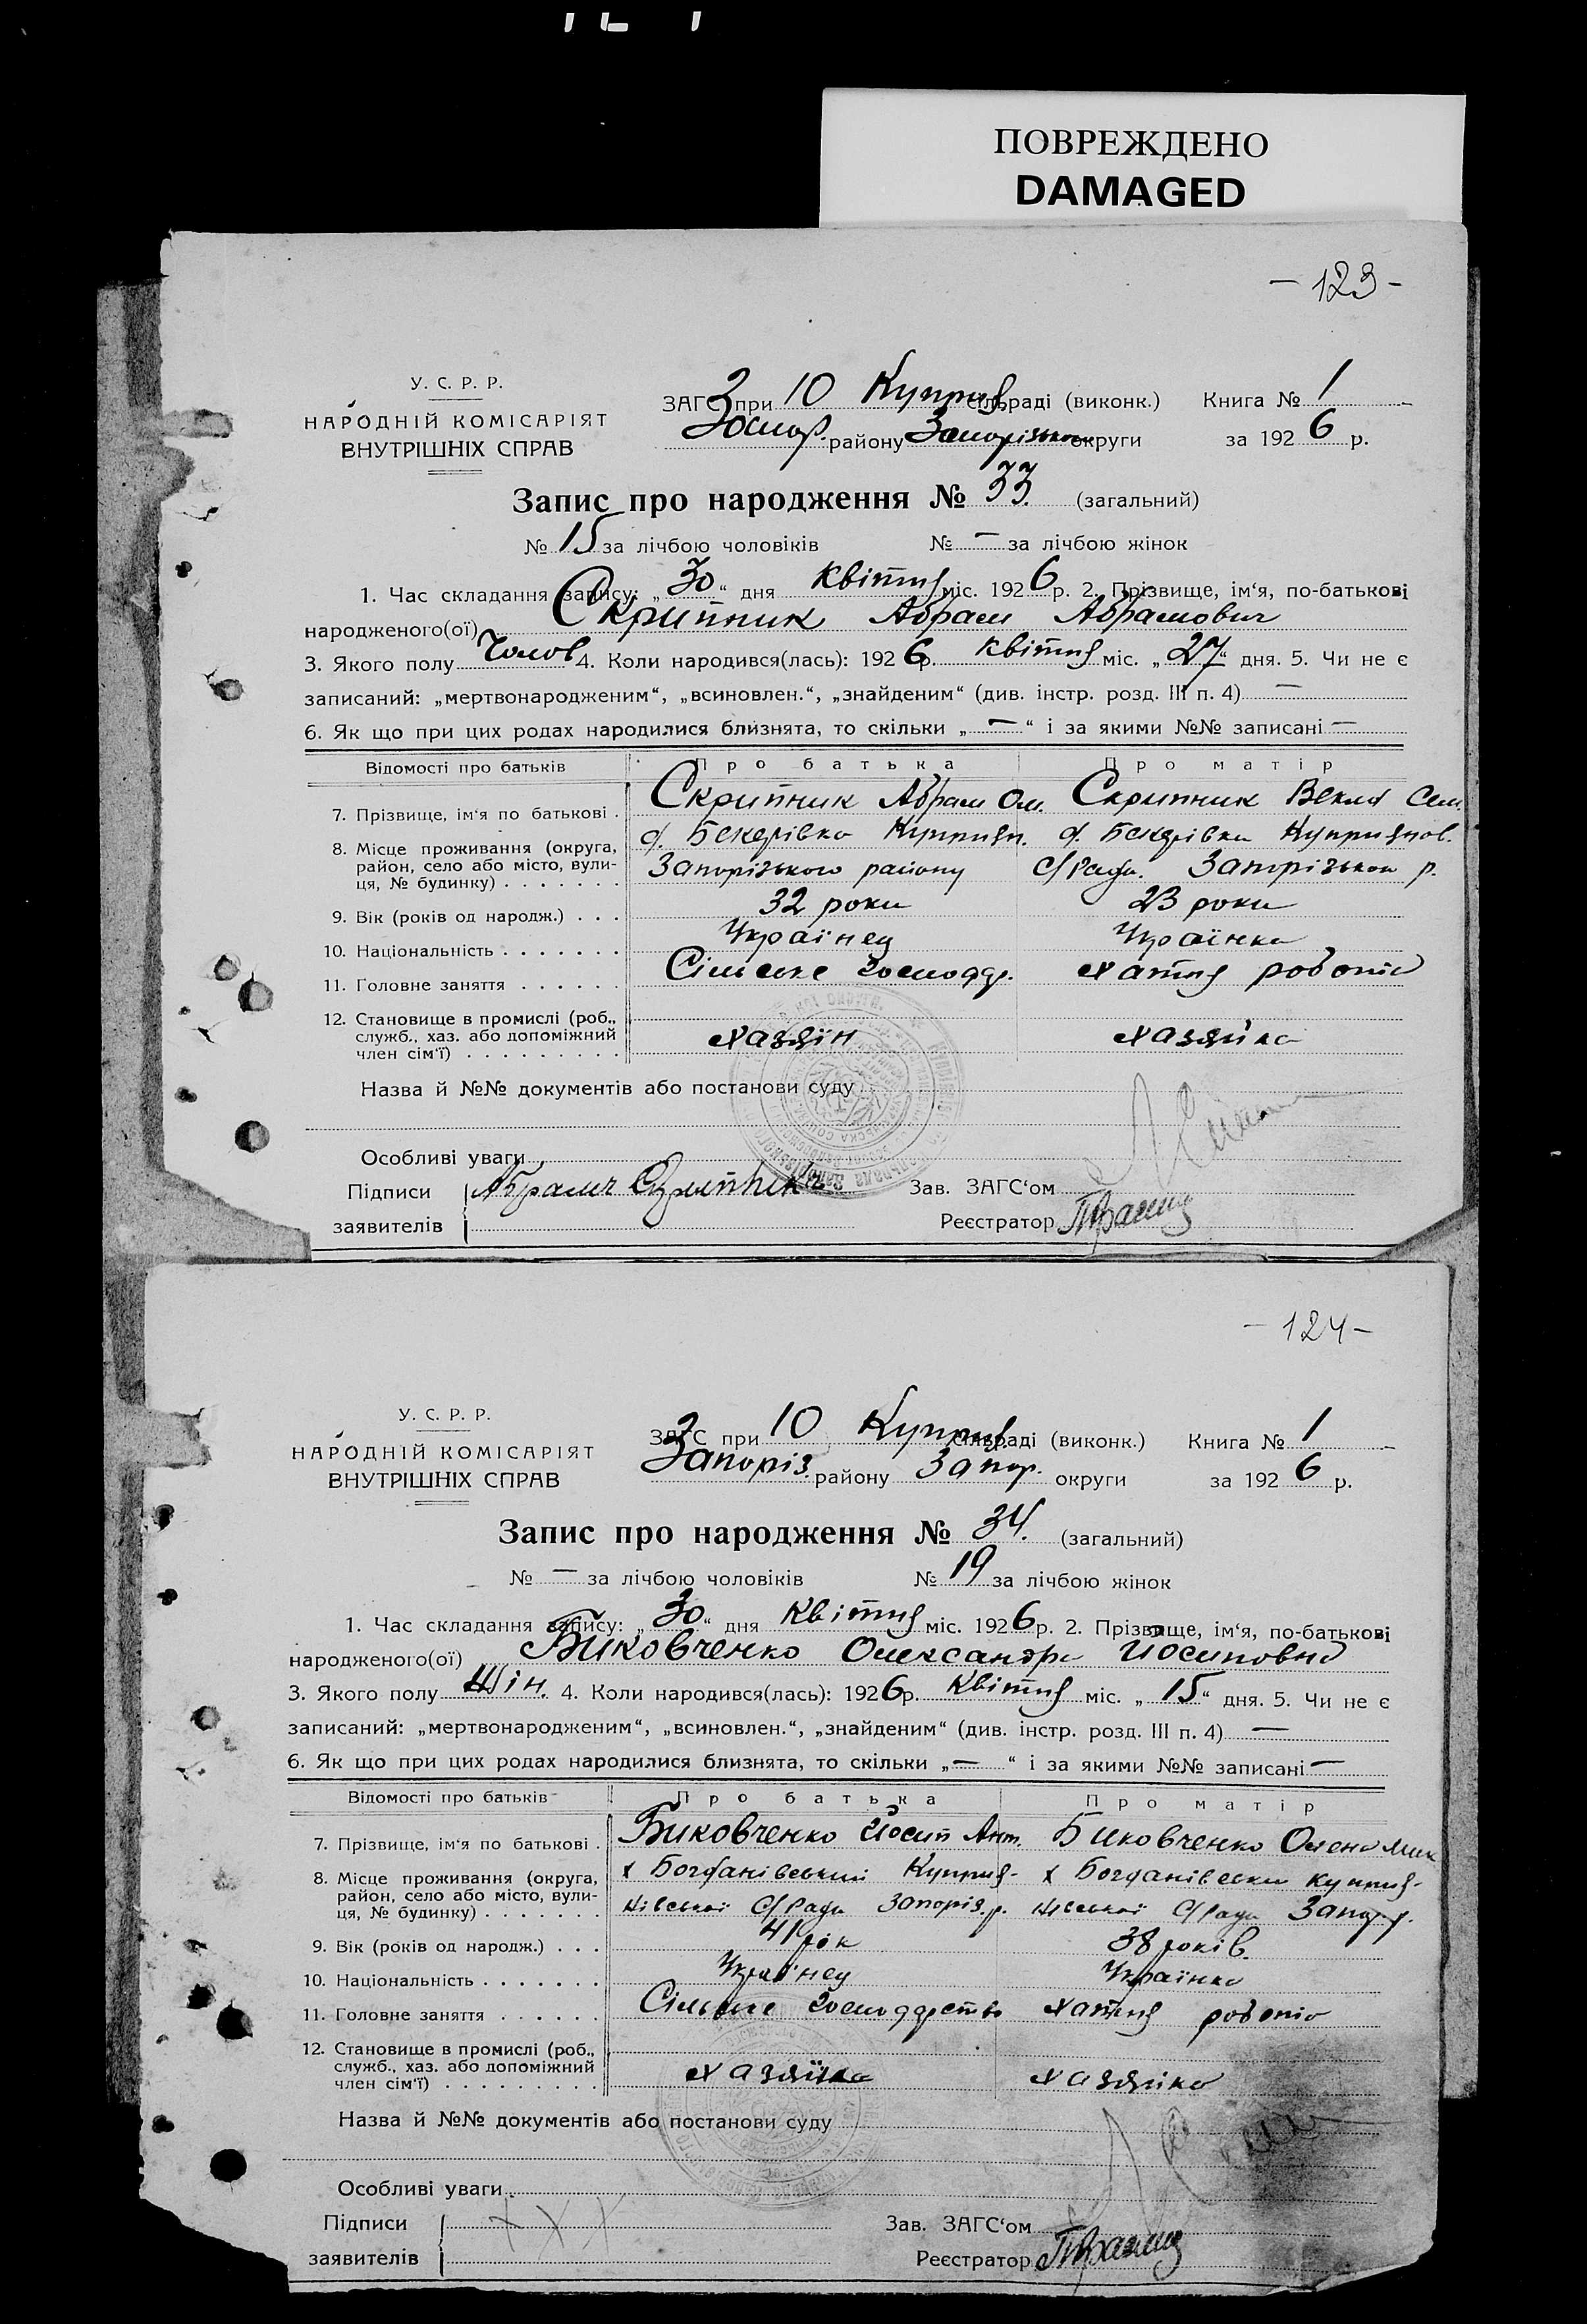 ПОВРЕЖДЕНО
DAMAGED
- 123 -
У. С. Р. Р.
НАРОДНІЙ КОМІСАРІЯТ
ВНУТРІШНІХ СПРАВ
ЗАГС при 10 Куприя сільраді (виконк.) Книга № 1
району Запорізької округи за 1926 р.
Запис про народження № 33. (загальний)
№ 15 за лічбою чоловіків № — за лічбою жінок
1. Час складання запису: „30“ дня квітня міс. 1926 р. 2. Прізвище, ім‘я, по-батькові
народженого(ої) Скрипник Абрам Абрамович
3. Якого полу Чолов 4. Коли народився(лась): 1926 р. квітня міс. „27“ дня. 5. Чи не є
записаний: „мертвонародженим“, „всиновлен.“, „знайденим“ (див. інстр. розд. III п. 4) —
6. Як що при цих родах народилися близнята, то скільки „—“ і за якими №№ записані —
Відомості про батьків Про батька Про матір
7. Прізвище, ім‘я по батькові . Скрипник Абрам Ом. Скрипник Векла Сем.
8. Місце проживання (округа, район, село або місто, вули- ця, № будинку) . . . . . . . с. Бекарівка Куприян. с. Бекарівка Куприянов.
Запорізького району С/Рада. Запорізького р.
9. Вік (років од народж.) . . . 32 роки 23 роки
10. Національність . . . . . . . Українец Українка
11. Головне заняття . . . . . . Сільське господар. Хатня робота
12. Становище в промислі (роб., служб., хаз. або допоміжний член сім‘ї) . . . . . . . . . хазяїн хазяйка
Назва й №№ документів або постанови суду
Особливі уваги
Підписи Абрам Скрипник Зав. ЗАГС‘ом
заявителів Реєстратор
- 124 -
У. С. Р. Р.
НАРОДНІЙ КОМІСАРІЯТ
ВНУТРІШНІХ СПРАВ
ЗАГС при 10 Куприя сільраді (виконк.) Книга № 1
Запоріз. району Запор. округи за 1926 р.
Запис про народження № 34. (загальний)
№ — за лічбою чоловіків № 19 за лічбою жінок
1. Час складання запису: „30“ дня Квітня міс. 1926 р. 2. Прізвище, ім‘я, по-батькові
народженого(ої) Биковченко Олександра Йосиповна
3. Якого полу Жін. 4. Коли народився(лась): 1926 р. Квітня міс. „15“ дня. 5. Чи не є
записаний: „мертвонародженим“, „всиновлен.“, „знайденим“ (див. інстр. розд. III п. 4) —
6. Як що при цих родах народилися близнята, то скільки „—“ і за якими №№ записані —
Відомості про батьків Про батька Про матір
7. Прізвище, ім‘я по батькові . Биковченко Йосип Ант. Биковченко Олена Мик
8. Місце проживання (округа, район, село або місто, вули- ця, № будинку) . . . . . . . х Богданівський Куприя- х Богданівский Куприя-
нівської С/Ради Запоріз. р. нівської С/Ради Запор р.
9. Вік (років од народж.) . . . 41 рік 38 років.
10. Національність . . . . . . . Українец Українка
11. Головне заняття . . . . . . Сільське господарство хатня робота
12. Становище в промислі (роб., служб., хаз. або допоміжний член сім‘ї) . . . . . . . . . хазяїка хазяйка
Назва й №№ документів або постанови суду
Особливі уваги
Підписи ХХХ Зав. ЗАГС‘ом
заявителів Реєстратор